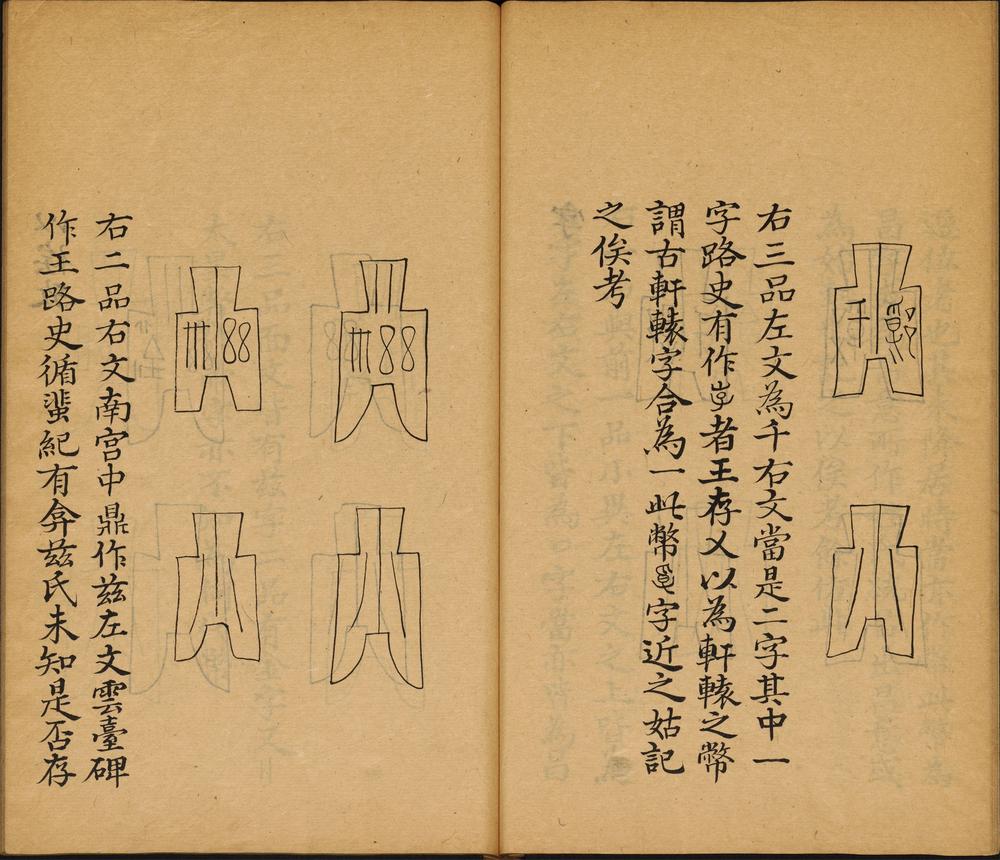 右三品左文為千右文當是二字其中一
字路史有作者王存乂以為軒轅之幣
謂古軒轅字合為一此幣字近之姑記
之俟考
右二品右文南宮中鼎作兹左文雲臺碑
作王路史循蜚紀有弇兹氏未知是否存